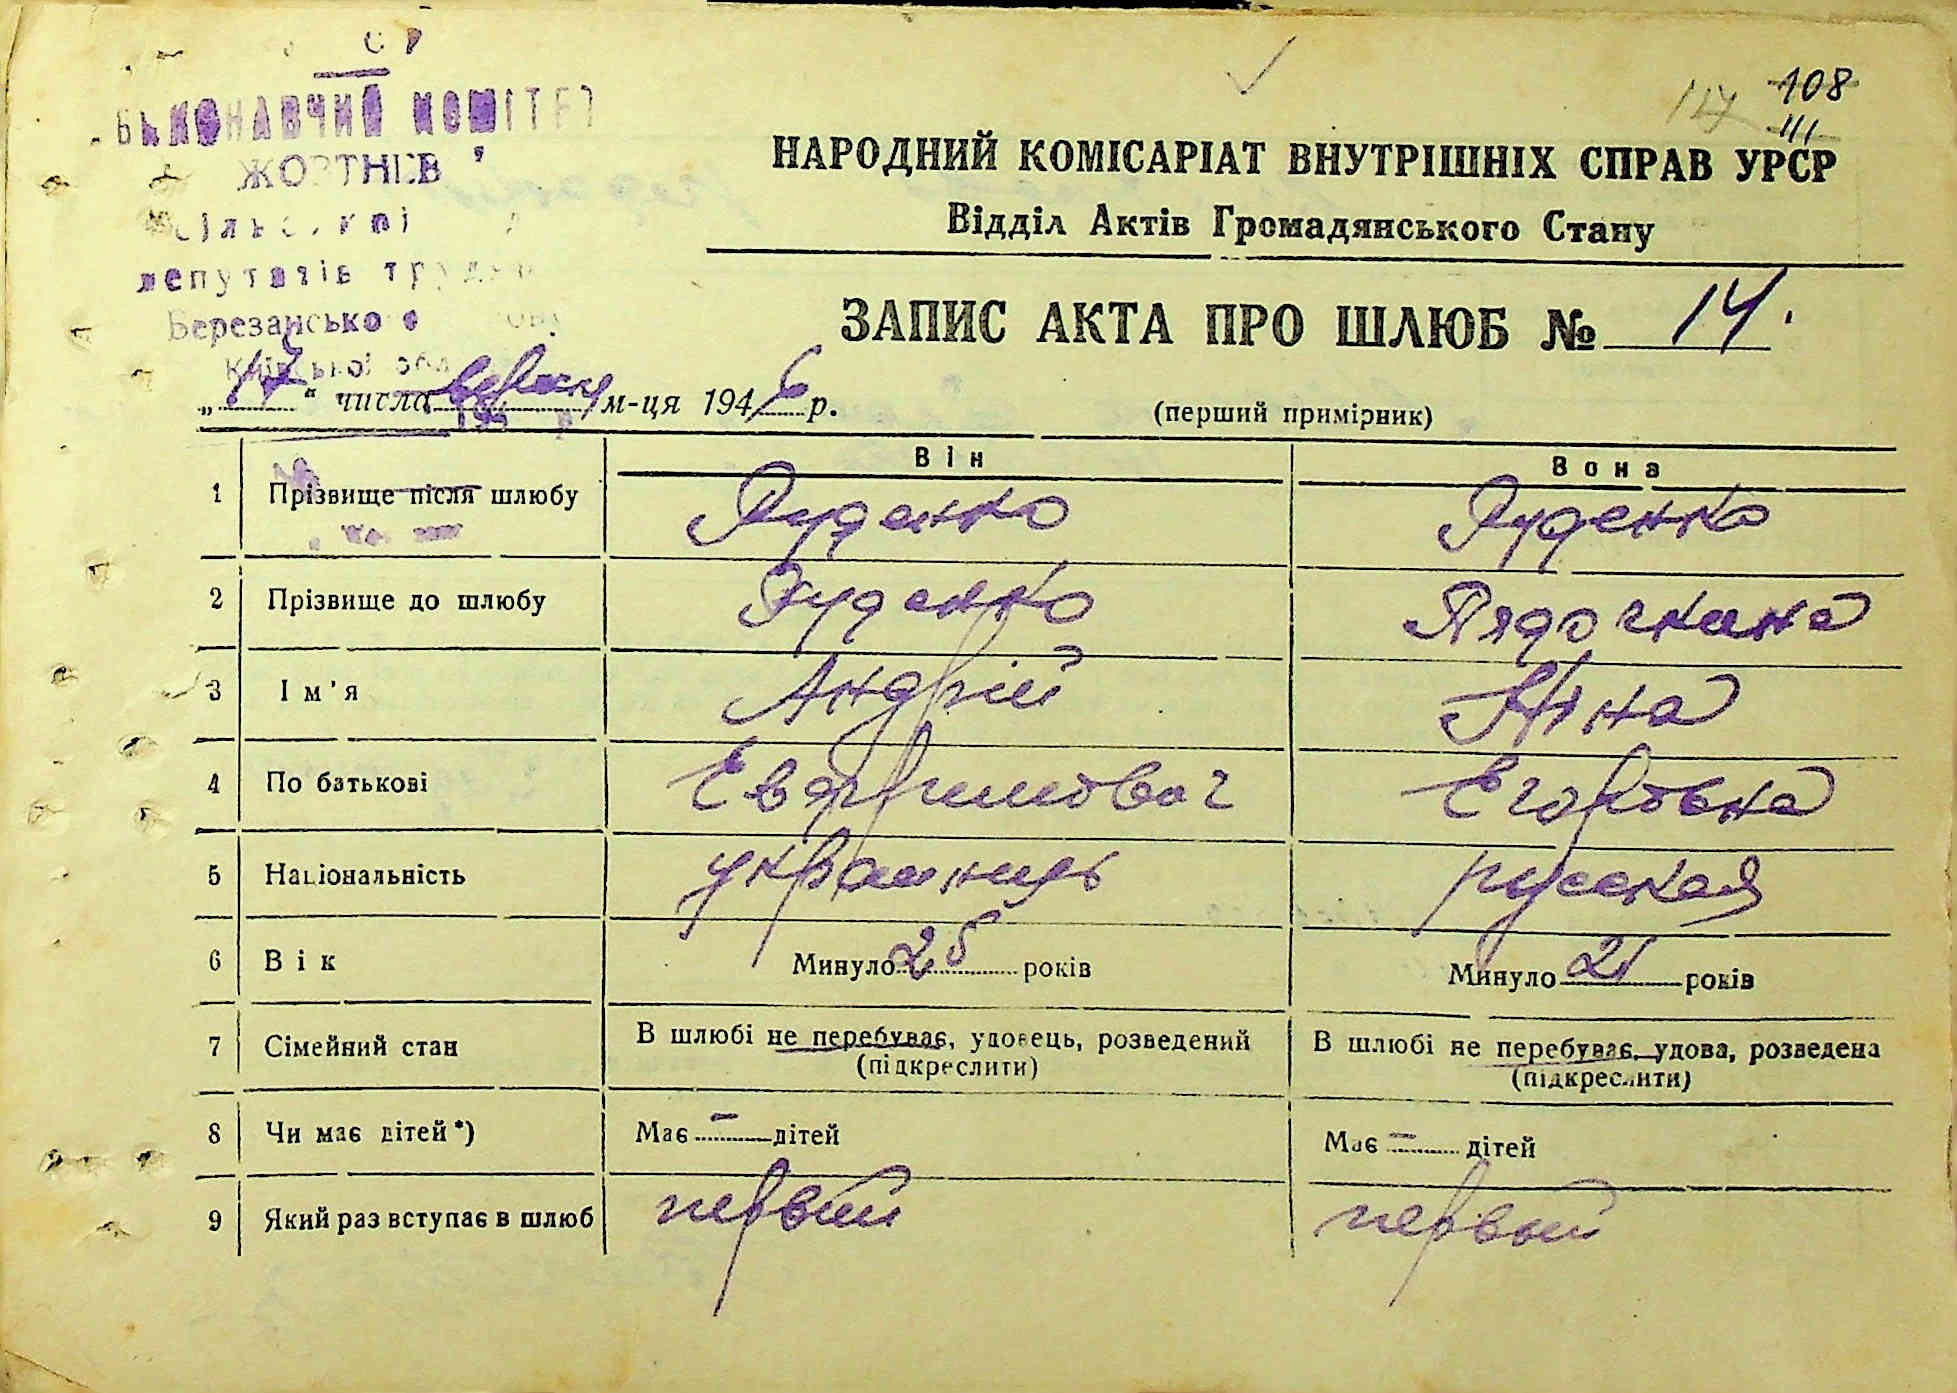 ВИКОНАВЧИЙ КОМІТЕТ
депутатів
Березансько
Київської
108
111
НАРОДНИЙ КОМІСАРІАТ ВНУТРІШНІХ СПРАВ УРСР
Відділ Актів Громадянського Стану
ЗАПИС АКТА ПРО ШЛЮБ № 14.
„17“ числа м-ця 1946 р.
(перший примірник)
Він Вона
1 Прізвище після шлюбу Руденко Руденко
2 Прізвище до шлюбу Руденко
3 Ім'я Андрій Ніна
4 По батькові Егоровна
5 Національність українець русская
6 Вік Минуло 25 років Минуло 21 років
7 Сімейний стан В шлюбі не перебуває, удовець, розведений В шлюбі не перебуває, удова, розведена
(підкреслити) (підкреслити)
8 Чи має дітей*) Має — дітей Має — дітей
9 Який раз вступає в шлюб первый первый